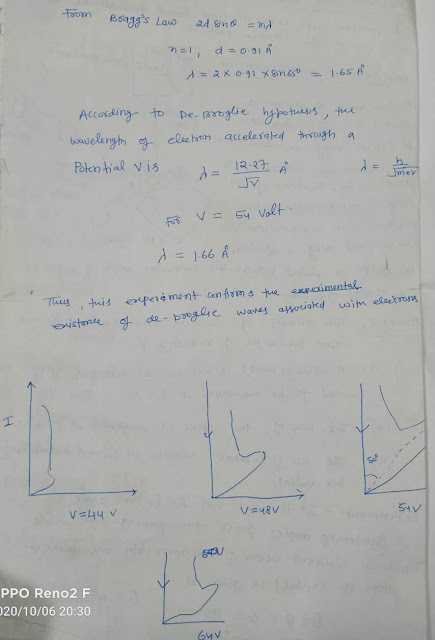 From Bragg's Law 2d sinθ = nλ
n=1, d = 0.91 Å
λ = 2 x 0.91 x sin65° = 1.65 Å
According to De-Broglie hypothesis, the
wavelength of electron accelerated through a
Potential V is λ = 12.27/√V Å λ = h/√mev
For V = 54 Volt.
λ = 1.66 Å.
Thus, this experiment confirms the experimental
existence of de-broglie waves associated with electrons
I
50°
V=44 V
V=48V
54V
64V
PPO Reno2 F
020/10/06 20:30